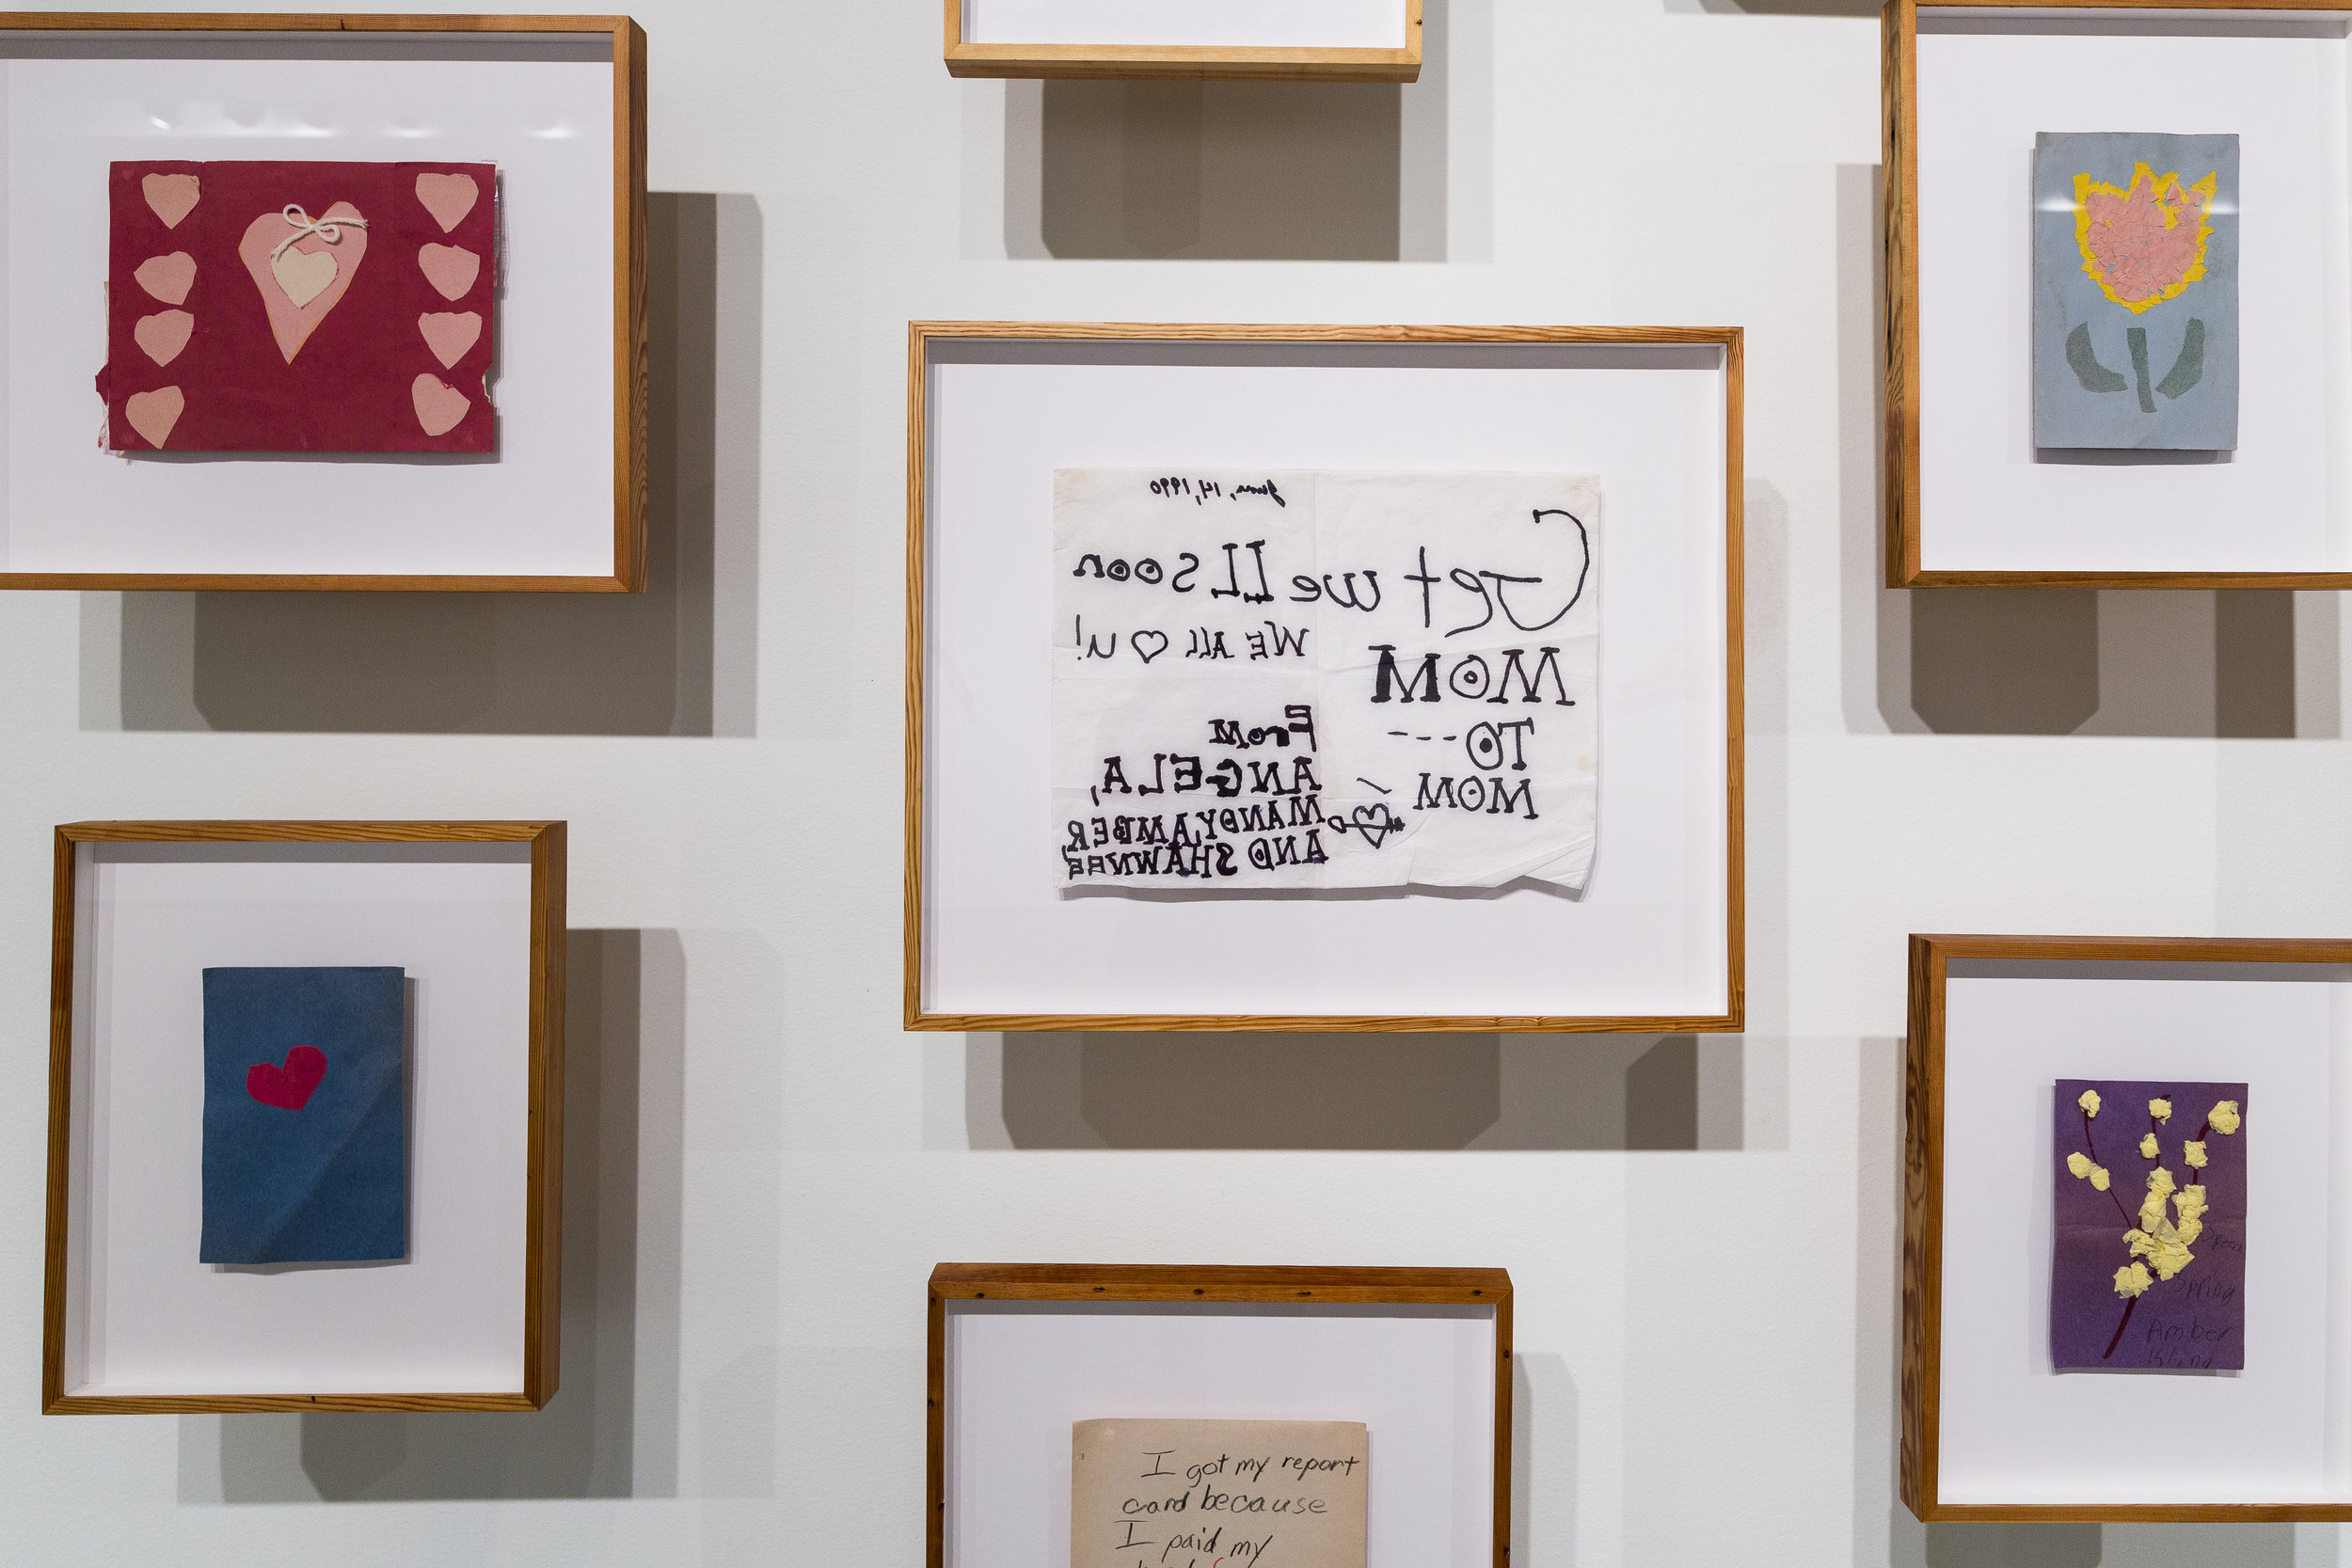 June, 14, 1990
Get weLL soon
MOM
WE ALL ♡ U!
TO---
MOM
From
ANGELA,
MANDY, AMBER,
AND SHAWNEE
Spring
Amber
I got my report
card because
I paid my